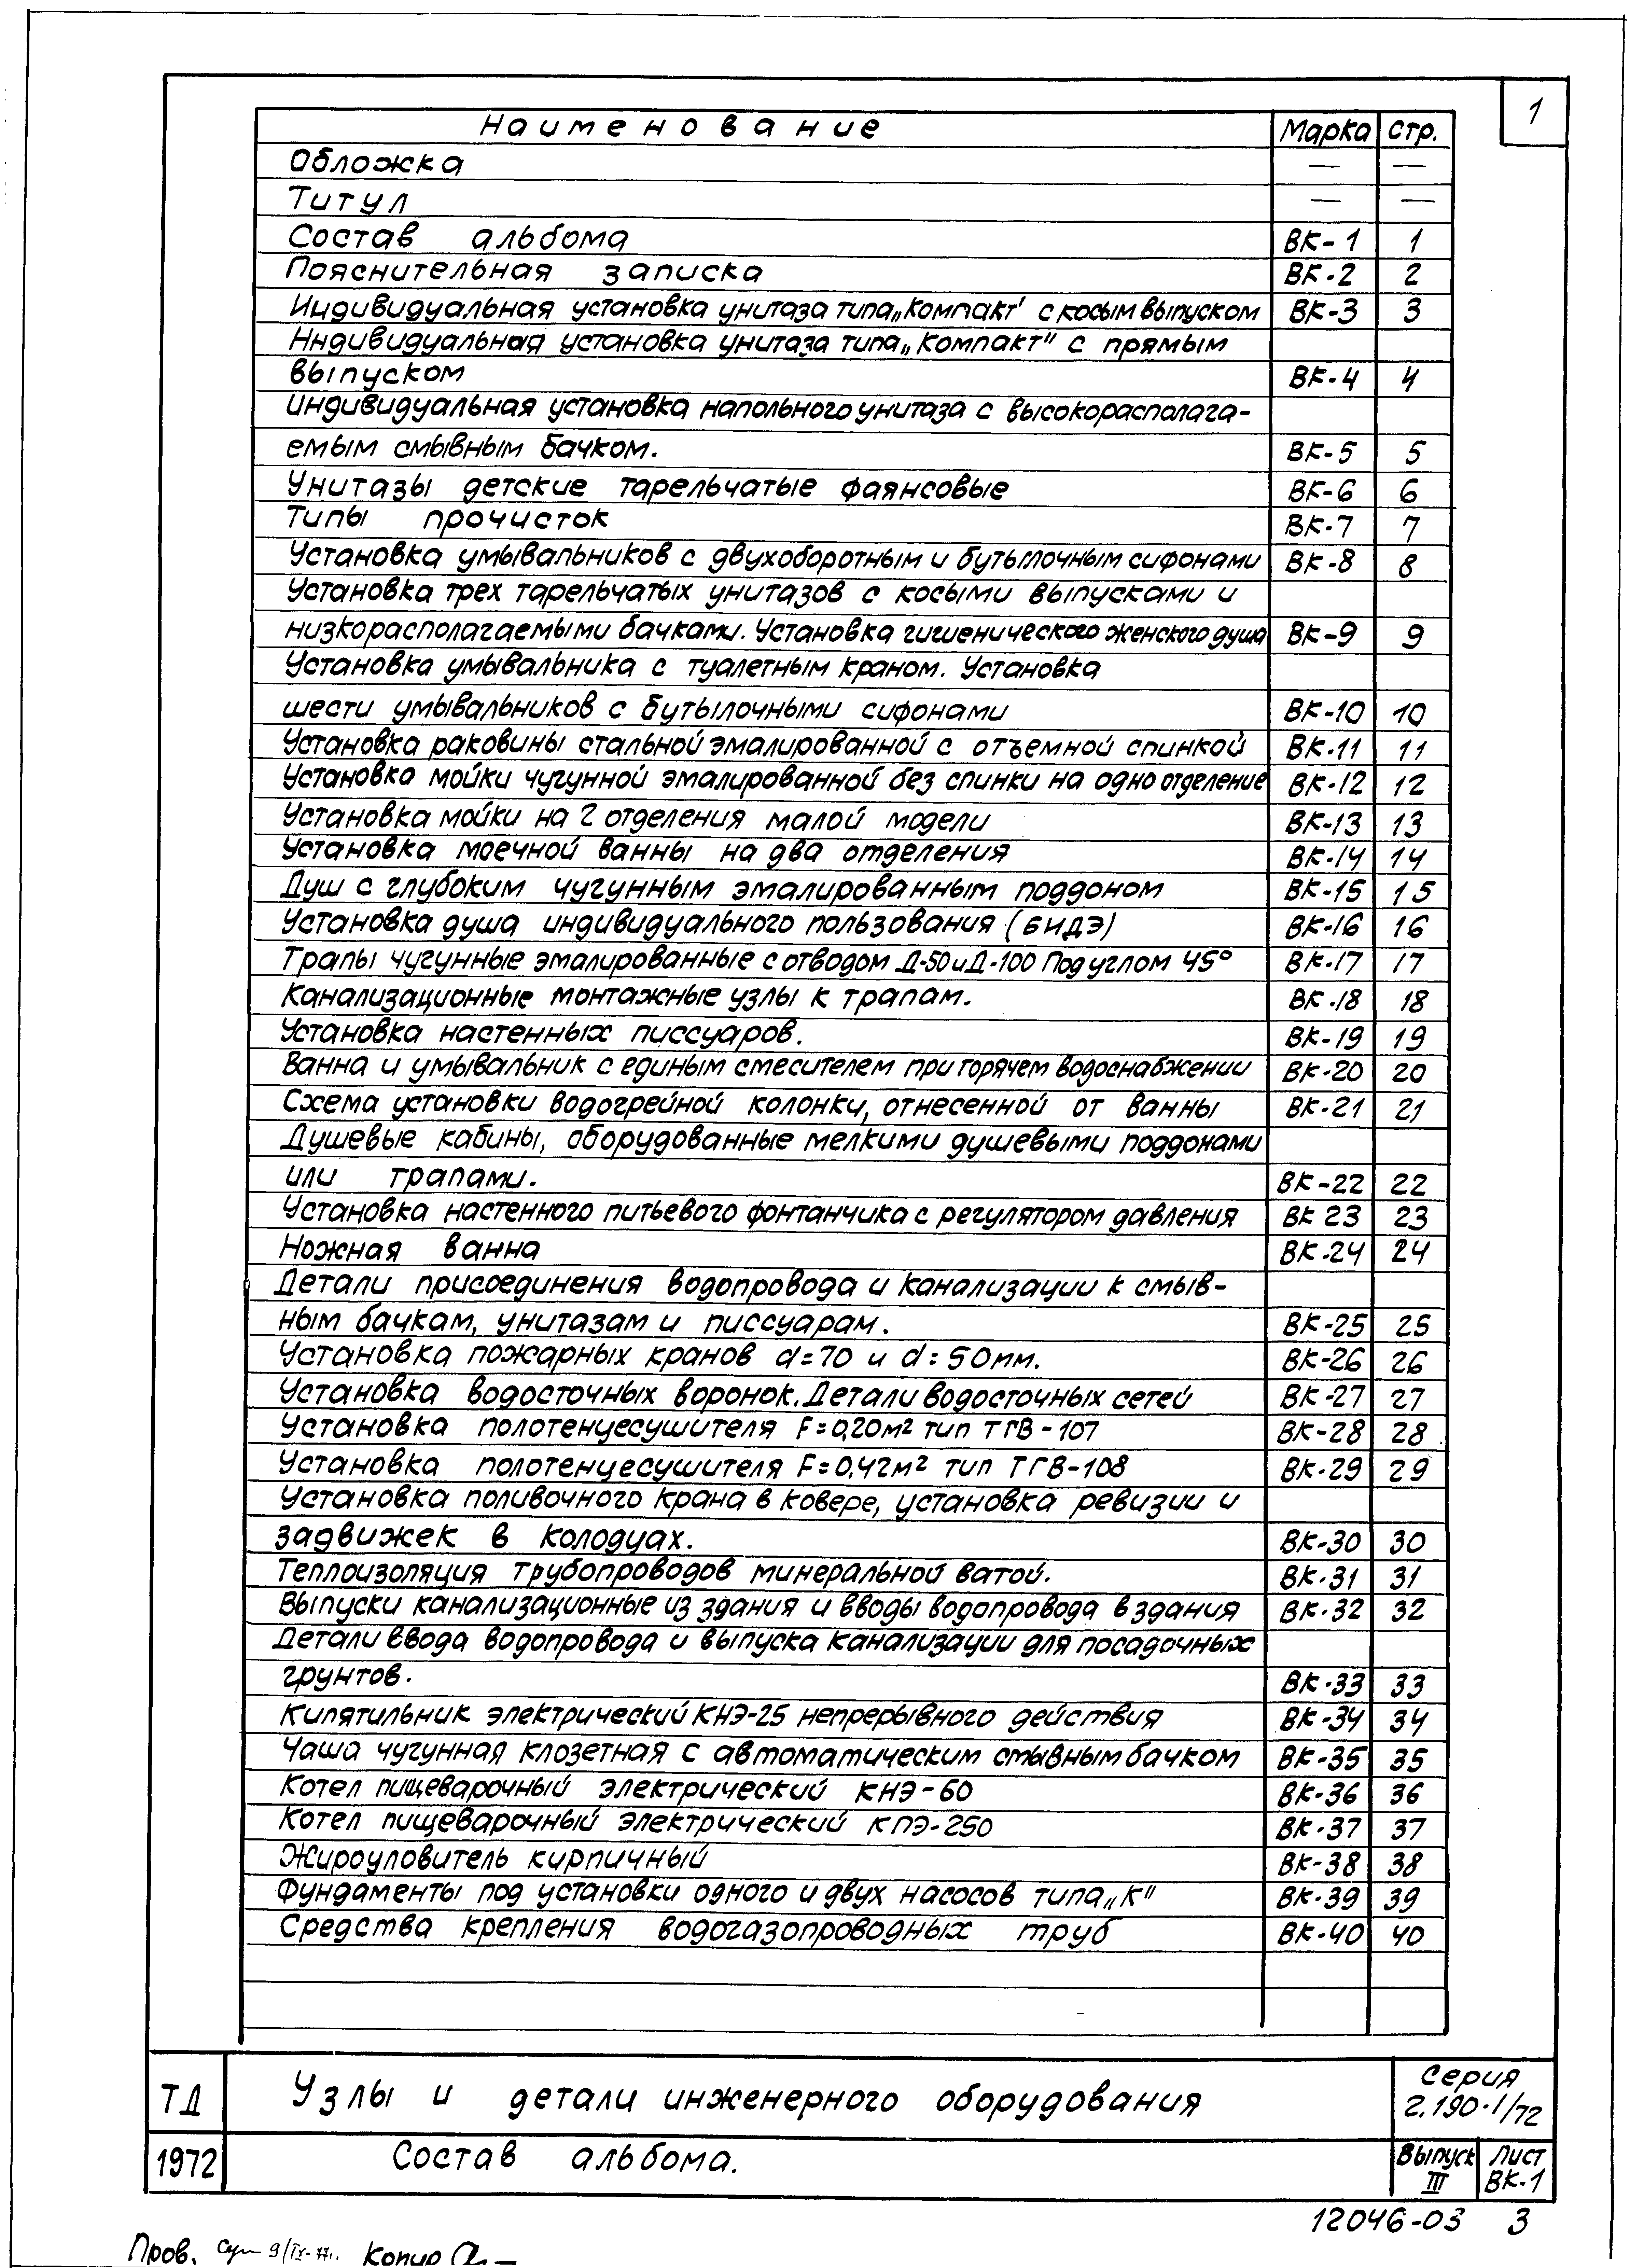 1
Наименование Марка Стр.
Обложка — —
Титул — —
Состав альбома ВК-1 1
Пояснительная записка ВК-2 2
Индивидуальная установка унитаза типа „Компакт" с косым выпуском ВК-3 3
Индивидуальная установка унитаза типа „Компакт" с прямым
выпуском ВК-4 4
Индивидуальная установка напольного унитаза с высокорасполага-
емым смывным бачком. ВК-5 5
Унитазы детские тарельчатые фаянсовые ВК-6 6
Типы прочисток ВК-7 7
Установка умывальников с двухоборотным и бутылочным сифонами ВК-8 8
Установка трех тарельчатых унитазов с косыми выпусками и
низкорасполагаемыми бачками. Установка гигиенического женского душа ВК-9 9
Установка умывальника с туалетным краном. Установка
шести умывальников с бутылочными сифонами ВК-10 10
Установка раковины стальной эмалированной с отъемной спинкой ВК-11 11
Установка мойки чугунной эмалированной без спинки на одно отделение ВК-12 12
Установка мойки на 2 отделения малой модели ВК-13 13
Установка моечной ванны на два отделения ВК-14 14
Душ с глубоким чугунным эмалированным поддоном ВК-15 15
Установка душа индивидуального пользования (БИДЭ) ВК-16 16
Трапы чугунные эмалированные с отводом Д-50 и Д-100 Под углом 45° ВК-17 17
Канализационные монтажные узлы к трапам. ВК-18 18
Установка настенных писсуаров. ВК-19 19
Ванна и умывальник с единым смесителем при горячем водоснабжении ВК-20 20
Схема установки водогрейной колонки, отнесенной от ванны ВК-21 21
Душевые кабины, оборудованные мелкими душевыми поддонами
или трапами. ВК-22 22
Установка настенного питьевого фонтанчика с регулятором давления ВК 23 23
Ножная ванна ВК-24 24
Детали присоединения водопровода и канализации к смыв-
ным бачкам, унитазам и писсуарам. ВК-25 25
Установка пожарных кранов d=70 и d=50мм. ВК-26 26
Установка водосточных воронок. Детали водосточных сетей ВК-27 27
Установка полотенцесушителя F=0,20м² тип ТГВ-107 ВК-28 28
Установка полотенцесушителя F=0,42м² тип ТГВ-108 ВК-29 29
Установка поливочного крана в ковере, установка ревизии и
задвижек в колодцах. ВК-30 30
Теплоизоляция трубопроводов минеральной ватой. ВК-31 31
Выпуски канализационные из здания и вводы водопровода в здания ВК-32 32
Детали ввода водопровода и выпуска канализации для посадочных
грунтов. ВК-33 33
Кипятильник электрический КНЭ-25 непрерывного действия ВК-34 34
Чаша чугунная клозетная с автоматическим смывным бачком ВК-35 35
Котел пищеварочный электрический КНЭ-60 ВК-36 36
Котел пищеварочный электрический КПЭ-250 ВК-37 37
Жироуловитель кирпичный ВК-38 38
Фундаменты под установки одного и двух насосов типа „К" ВК-39 39
Средства крепления водогазопроводных труб ВК-40 40
ТД Узлы и детали инженерного оборудования Серия
2.190-1/72
1972 Состав альбома. Выпуск III Лист ВК-1
12046-03 3
Пров. Копир